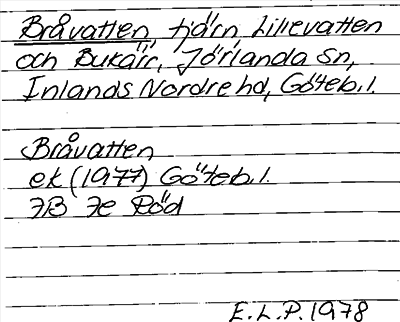 Bråvatten, tjärn, Lillevatten
och Bukärr, Jörlanda sn,
Inlands Nordre hd, Göteb.l.
Bråvatten
ek (1977) Göteb.l.
7B 7e Röd
E.L.P. 1978